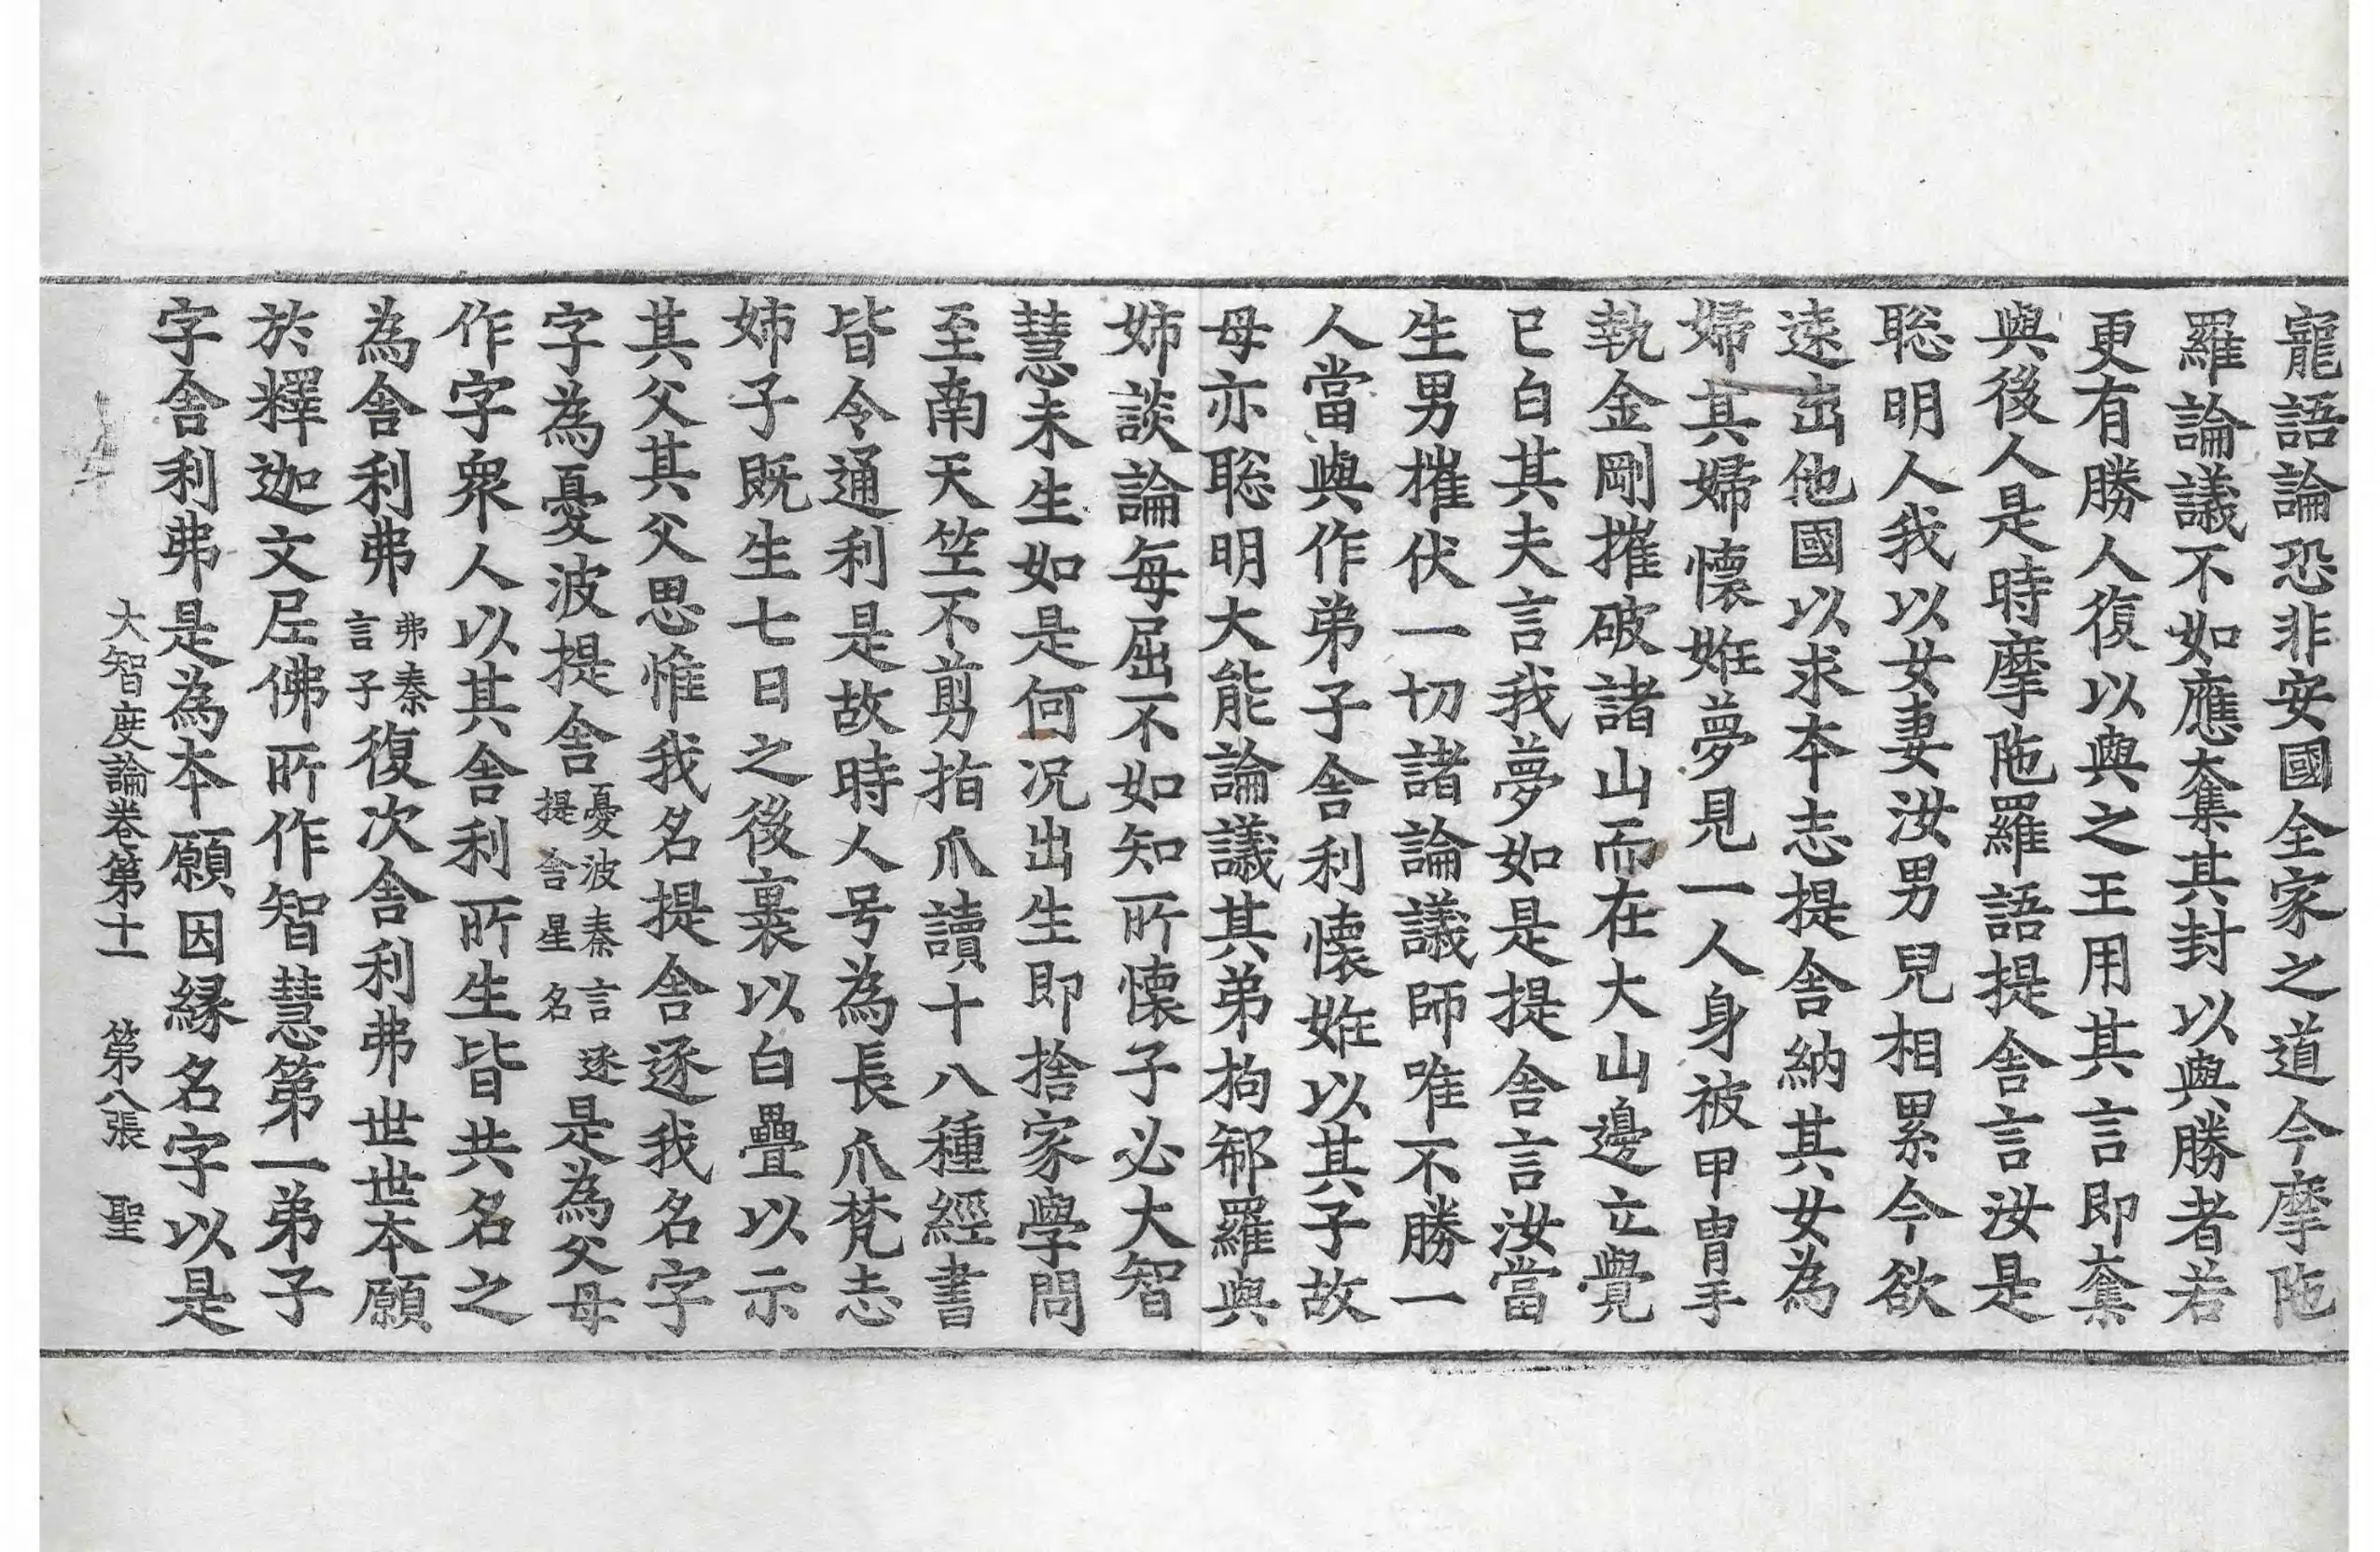 寵語論恐非安國全家之道今摩陁
羅論議不如應奪其封以與勝者若
更有勝人復以與之王用其言即奪
與後人是時摩陁羅語提舍言汝是
聡明人我以女妻汝男兒相累今欲
遠出他國以求本志提舍納其女為
婦其婦懷姙夢見一人身被甲冑手
執金剛摧破諸山而在大山邊立覺
已白其夫言我夢如是提舍言汝當
生男摧伏一切諸論議師唯不勝一
人當與作弟子舍利懷姙以其子故
母亦聡明大能論議其弟拘郗羅與
姉談論每屈不如知所懷子必大智
慧未生如是何况出生即捨家學問
至南天竺不剪指爪讀十八種經書
皆令通利是故時人号為長爪梵志
姉子既生七日之後裹以白疊以示
其父其父思惟我名提舍逐我名字
字為憂波提舍憂波秦言逐提舍星名是為父母
作字衆人以其舍利所生皆共名之
為舍利弗弗秦言子復次舍利弗世世本願
於釋迦文尼佛所作智慧第一弟子
字舍利弗是為本願因縁名字以是
大智度論卷第十一 第八張 聖